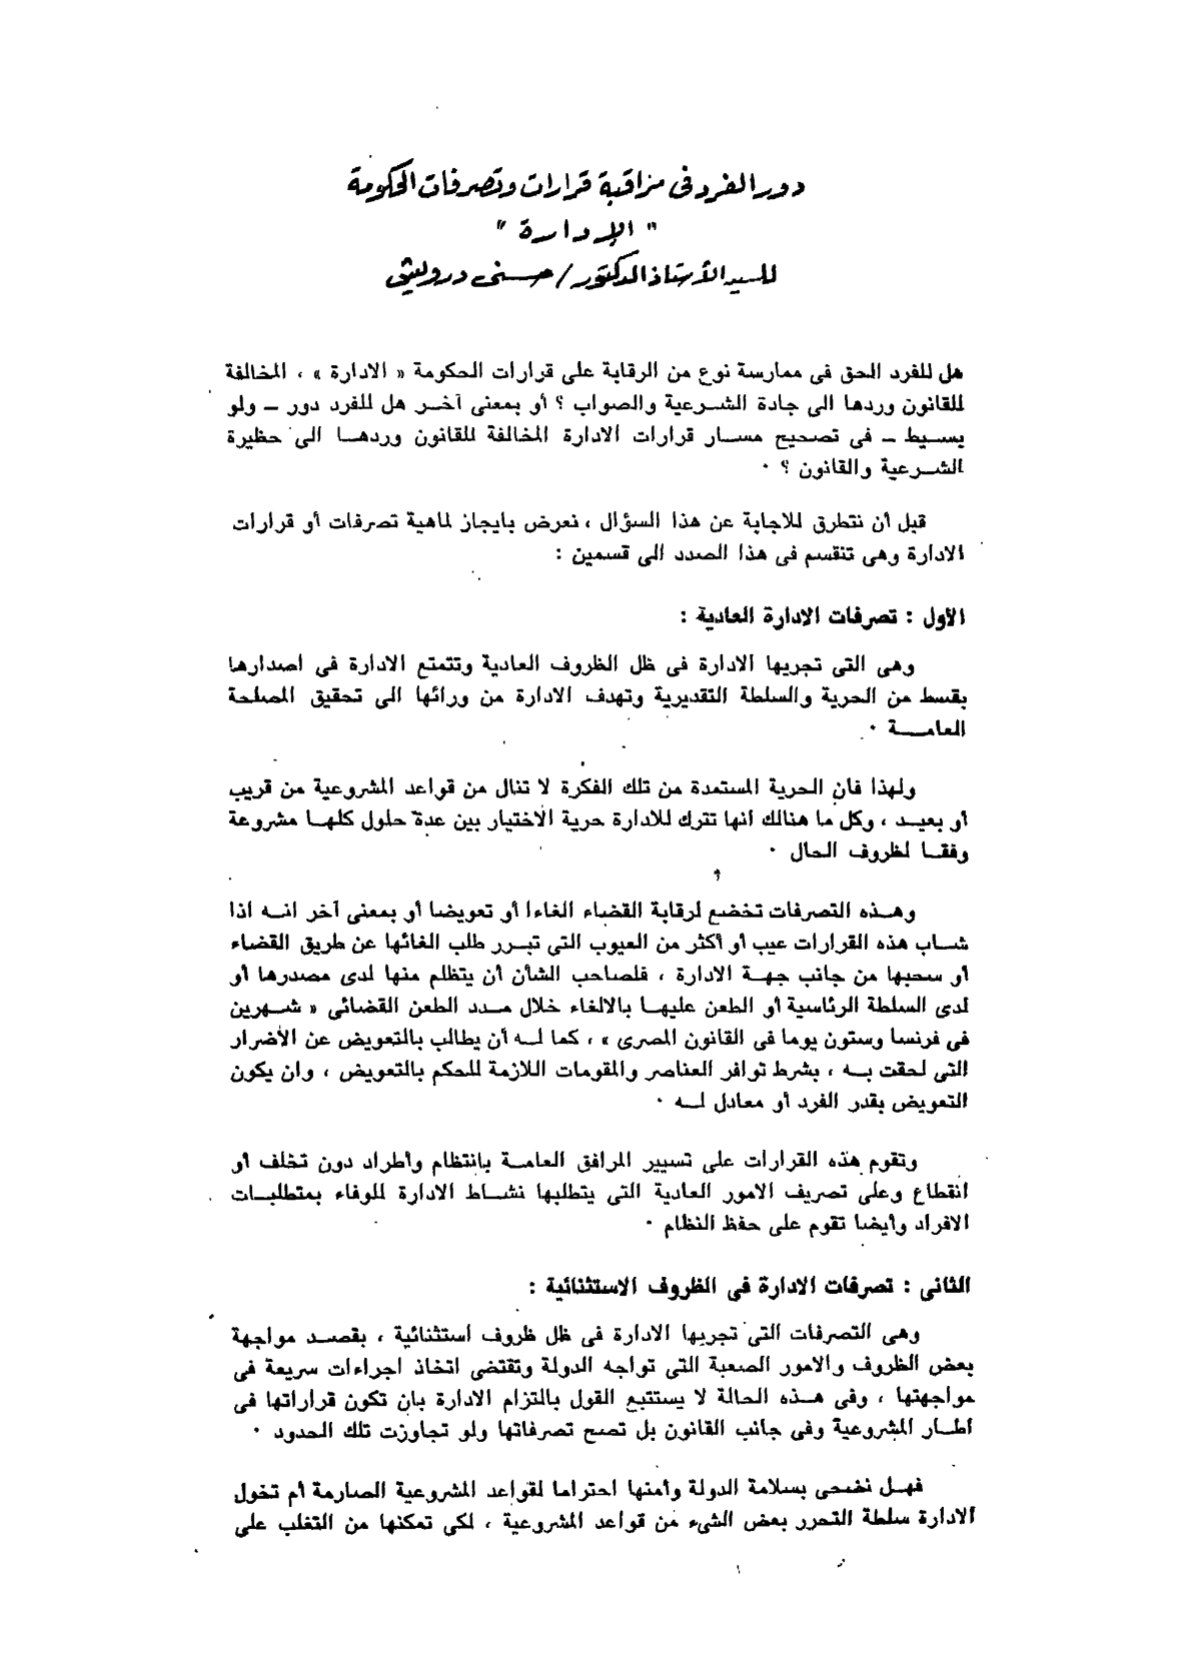 دور الفرد فى مراقبة قرارات وتصرفات الحكومة
" الإدارة "
للسيد الأستاذ الدكتور / حسنى درويش
هل للفرد الحق فى ممارسة نوع من الرقابة على قرارات الحكومة « الادارة » ، المخالفة
للقانون وردها الى جادة الشــرعية والصواب ؟ أو بمعنى آخــر هل للفرد دور ــ ولو
بسـيط ــ فى تصحيح مسـار قرارات الادارة المخالفة للقانون وردهـا الى حظيرة
الشــرعية والقانون ؟ ٠
قبل أن نتطرق للاجابة عن هذا السؤال ، نعرض بايجاز لماهية تصرفات أو قرارات
الادارة وهى تنقسم فى هذا الصدد الى قسمين :
الأول : تصرفات الادارة العادية :
وهى التى تجريها الادارة فى ظل الظروف العادية وتتمتع الادارة فى اصدارها
بقسط من الحرية والسلطة التقديرية وتهدف الادارة من ورائها الى تحقيق المصلحة
العامــة ٠
ولهذا فان الحرية المستمدة من تلك الفكرة لا تنال من قواعد المشروعية من قريب
أو بعيـد ، وكل ما هنالك أنها تترك للادارة حرية الاختيار بين عدة حلول كلهـا مشروعة
وفقـا لظروف الحال ٠
وهـذه التصرفات تخضع لرقابة القضاء الغاءا أو تعويضا أو بمعنى آخر انـه اذا
شـاب هذه القرارات عيب أو أكثر من العيوب التى تبـرر طلب الغائها عن طريق القضاء
أو سحبها من جانب جهـة الادارة ، فلصاحب الشأن أن يتظلم منها لدى مصدرها أو
لدى السلطة الرئاسية أو الطعن عليهـا بالالغاء خلال مـدد الطعن القضائى « شـهرين
فى فرنسا وستون يوما فى القانون المصرى » ، كما لـه أن يطالب بالتعويض عن الأضرار
التى لحقت بـه ، بشرط توافر العناصر والمقومات اللازمة للحكم بالتعويض ، وان يكون
التعويض بقدر الفرد أو معادل لـه ٠
وتقوم هذه القرارات على تسيير المرافق العامـة بانتظام وأطراد دون تخلف أو
انقطاع وعلى تصريف الامور العادية التى يتطلبها نشـاط الادارة للوفاء بمتطلبـات
الافراد وأيضا تقوم على حفظ النظام ٠
الثانى : تصرفات الادارة فى الظروف الاستثنائية :
وهى التصرفات التى تجريها الادارة فى ظل ظروف استثنائية ، بقصـد مواجهة
بعض الظروف والامور الصعبة التى تواجه الدولة وتقتضى اتخاذ اجراءات سريعة فى
مواجهتها ، وفى هـذه الحالة لا يستتبع القول بالتزام الادارة بان تكون قراراتها فى
اطـار المشروعية وفى جانب القانون بل تصح تصرفاتها ولو تجاوزت تلك الحدود ٠
فهـل نضحى بسلامة الدولة وأمنها احتراما لقواعد المشروعية الصارمة أم تخول
الادارة سلطة التحرر بعض الشىء من قواعد المشروعية ، لكى تمكنها من التغلب على